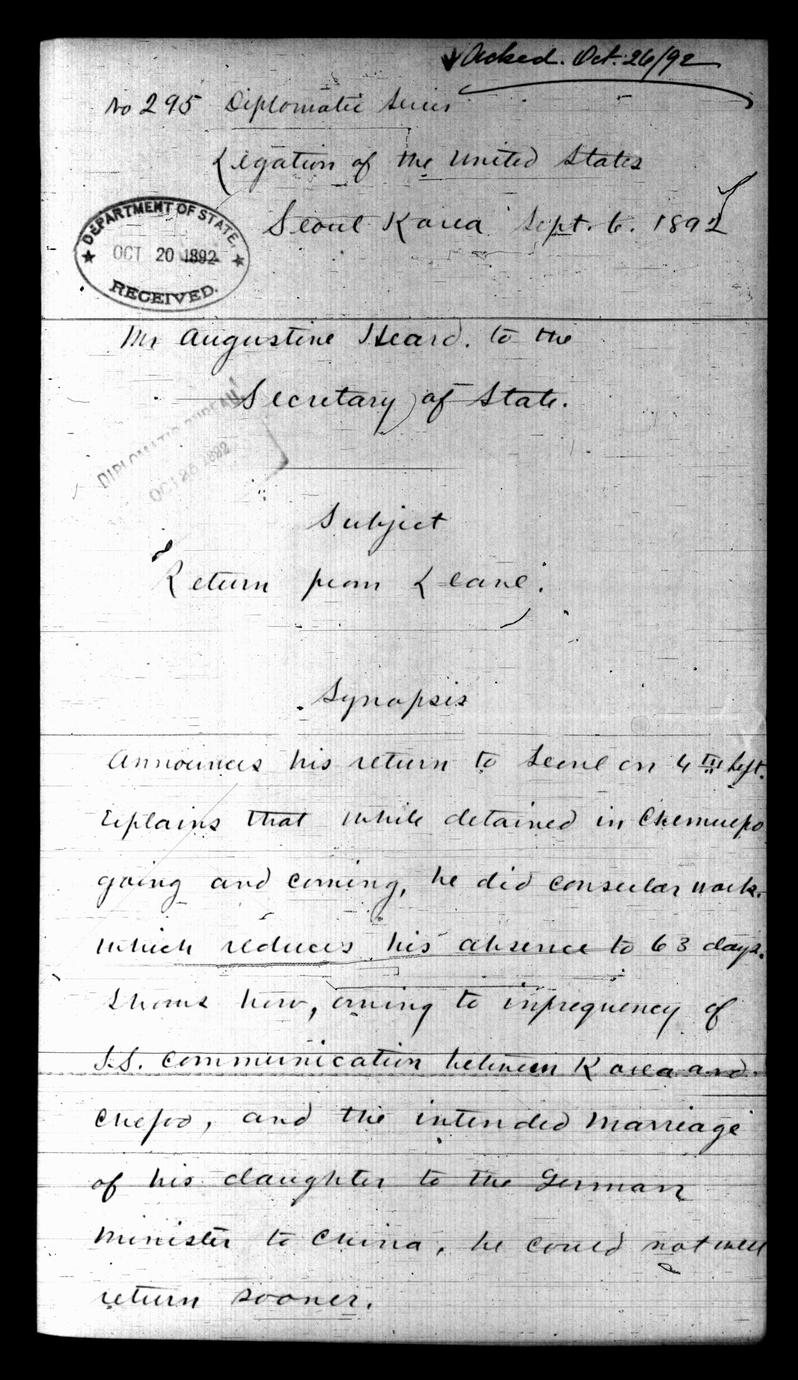 Acked. Oct. 26/92
No 295 Diplomatic Series
Legation of the United States
Seoul Korea Sept. 6. 1892
DEPARTMENT OF STATE,
OCT 20 1892
RECEIVED.
Mr Augustine Heard. to the
Secretary of State.
DIPLOMATIC BUREAU
OCT 26 1892
Subject
"Return from Leave".
Synopsis
Announces his return to Seoul on 4th Sept.
Explains that while detained in Chemulpo
going and coming, he did consular work.
which reduces his absence to 63 days.
Shows how, owing to infrequency of
S.S. communication between Korea and
Chefoo, and the intended marriage
of his daughter to the German
Minister to China, he could not well
return sooner.